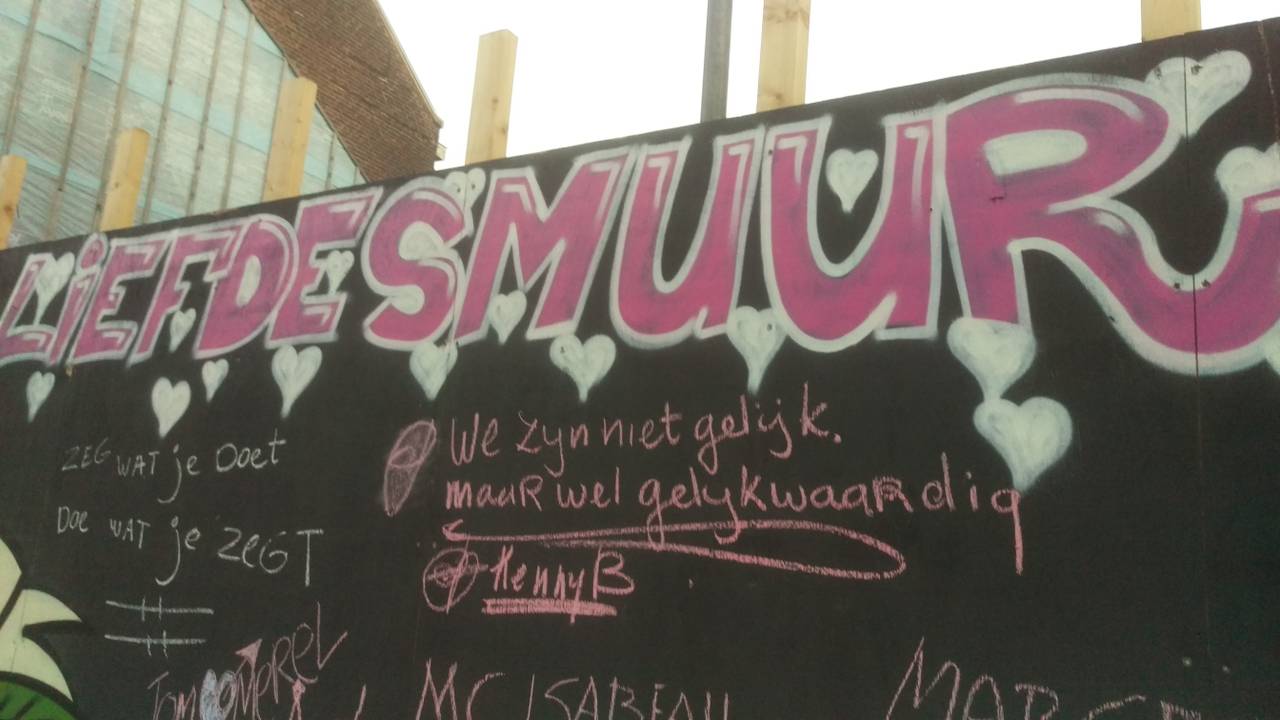 LiEFDESMUUR
ZEG WAT je Doet
Doe WAT je ZeGT
We zyn niet gelijk.
maaR wel gelykwaaRdig
Kenny B
MC ISABEAU